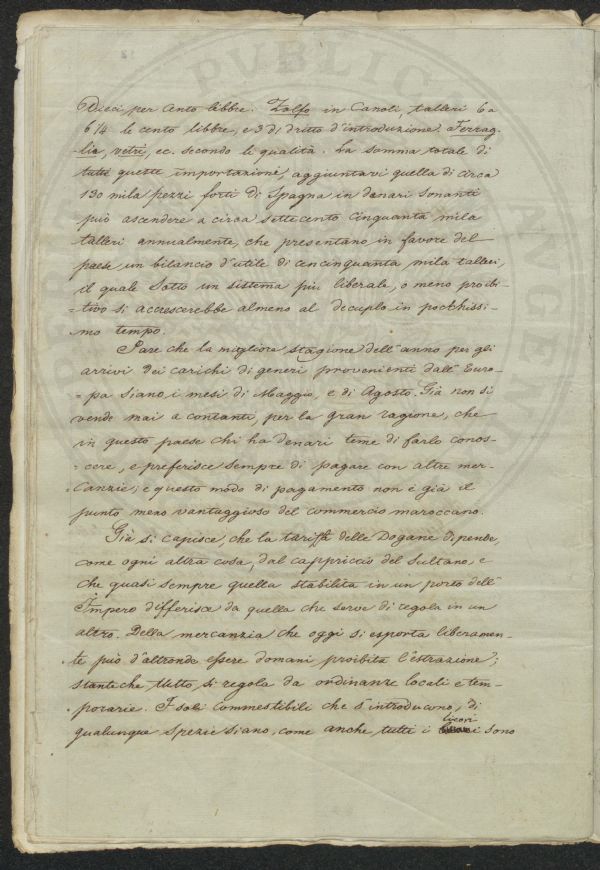 Dieci per cento libbre. Zolfo in Canoli, talleri 6 a
6 1/4 le cento libbre, e 3 di dritto d'introduzione. Ferrag-
lia, vetri, ec. secondo le qualità. La somma totale di
tutte queste importazione, aggiuntavi quella di circa
130 mila pezzi forti di Spagna in denari sonanti
può ascendere a circa settecento cinquanta mila
talleri annualmente, che presentano in favore del
paese un bilancio d'utile di cencinquanta mila talleri,
il quale sotto un sistema più liberale, o meno proibi-
=tivo si accrescerebbe almeno al decuplo in pochissi-
mo tempo.
Pare che la migliore stagione dell'anno per gli
arrivi dei carichi di generi provenienti dall'Euro-
=pa siano i mesi di Maggio, e di Agosto. Già non si
vende mai a contanti, per la gran ragione, che
in questo paese chi ha denari teme di farlo conos-
=cere, e preferisce sempre di pagare con altre mer-
canzie; e questo modo di pagamento non è già il
punto meno vantaggioso del commercio maroccano.
Già si capisce, che la tariffa delle Dogane dipende,
come ogni altra cosa, dal cappriccio del Sultano, e
che quasi sempre quella stabilita in un porto dell'
Impero differisce da quella che serve di regola in un
altro. Della mercanzia che oggi si esporta liberamen-
te può d'altronde essere domani proibita l'estrazione;
stanteche tutto si regola da ordinanze locali e tem-
porarie. I soli commestibili che s'introducono, di
qualunque spezie siano, come anche tutti i licori sono